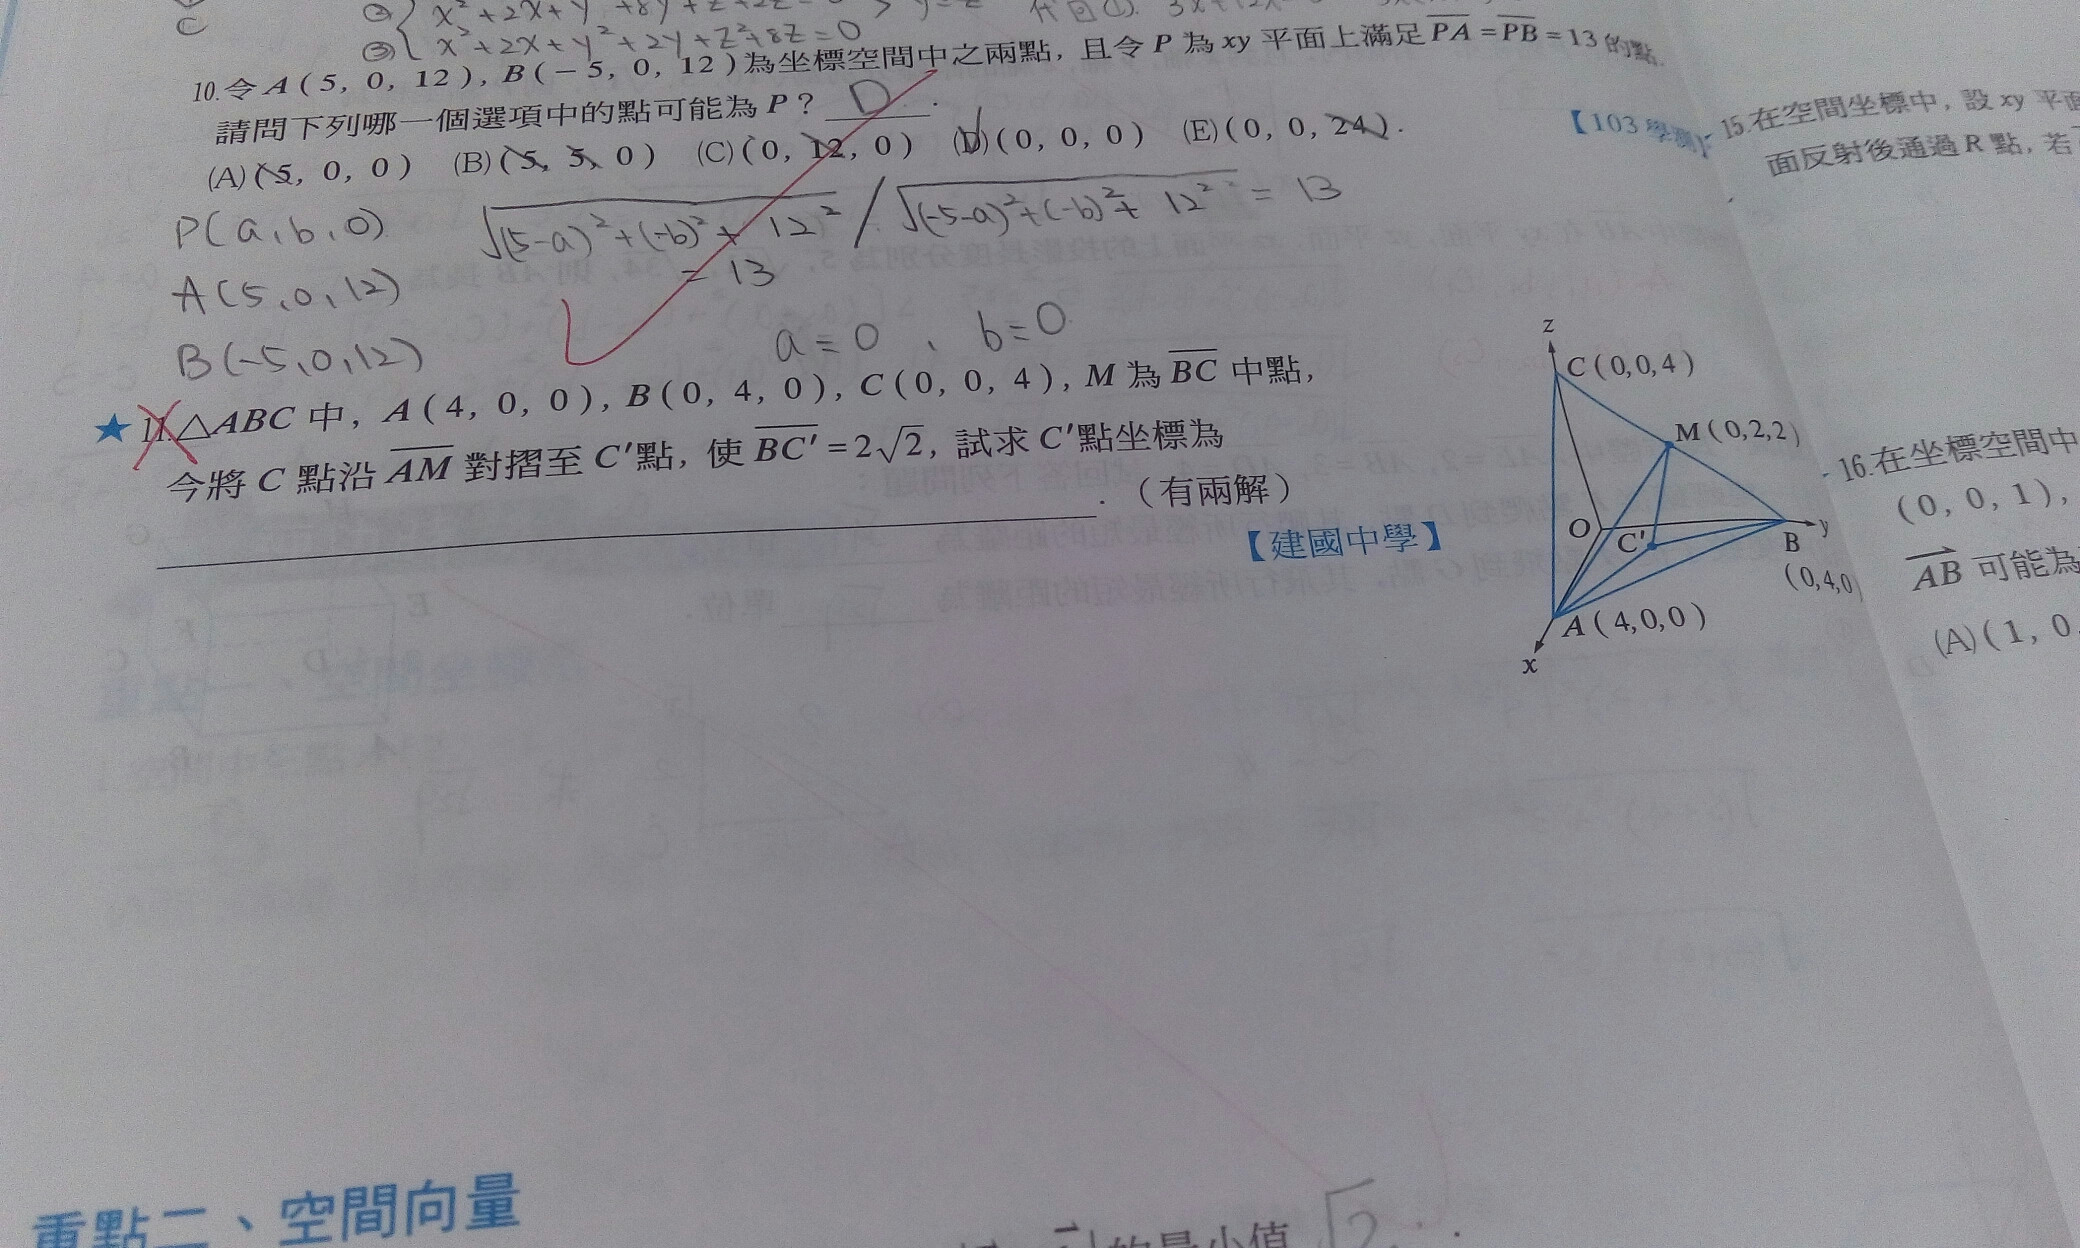 C
② x²+2x+y²+8y+z²+2z
③ x²+2x+y²+2y+z²+8z=0
代回①.
10.令A(5, 0, 12), B(-5, 0, 12)為坐標空間中之兩點, 且令P為xy平面上滿足PA=PB=13的點.
請問下列哪一個選項中的點可能為P? D.
【103學測】
(A)(5, 0, 0) (B)(5, 5, 0) (C)(0, 12, 0) (D)(0, 0, 0) (E)(0, 0, 24).
P(a,b,0) √(5-a)²+(-b)²+12² / √(-5-a)²+(-b)²+12² = 13
= 13
A(5,0,12)
B(-5,0,12) a=0、b=0
★11.△ABC中, A(4, 0, 0), B(0, 4, 0), C(0, 0, 4), M為BC中點,
今將C點沿AM對摺至C'點, 使BC'=2√2, 試求C'點坐標為
.(有兩解)
【建國中學】
z
C(0,0,4)
M(0,2,2)
O
C'
B
y
(0,4,0)
A(4,0,0)
x
15.在空間坐標中, 設xy平面
面反射後通過R點, 若
16.在坐標空間中
(0, 0, 1),
AB可能為
(A)(1, 0,
重點二、空間向量
的最小值 √2.